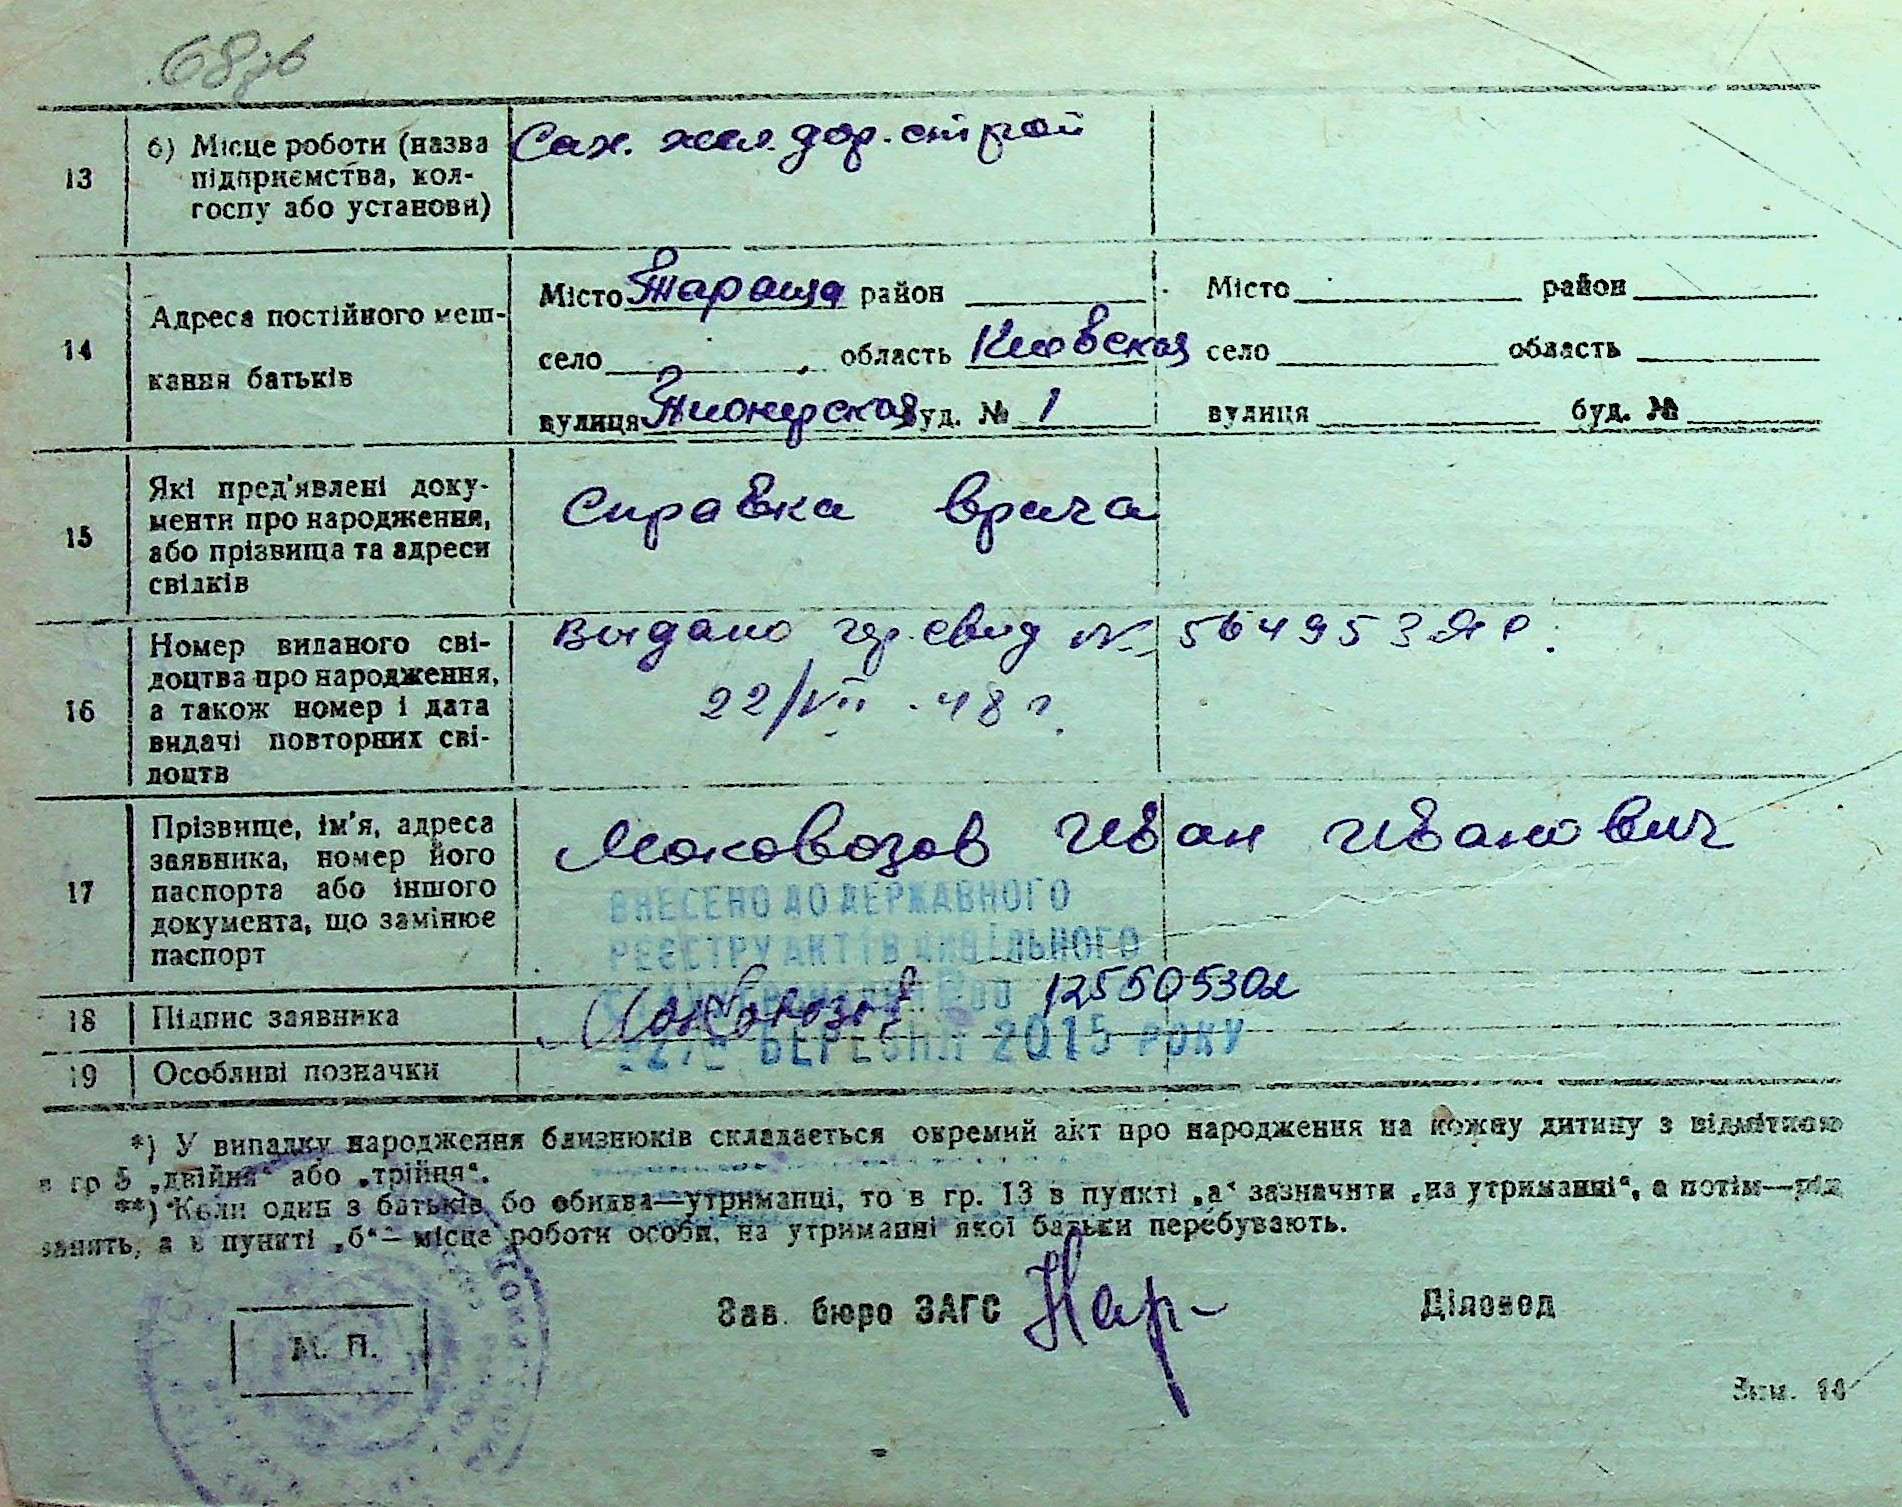 68зв
13
б) Місце роботи (назва
підприємства, кол-
госпу або установи)
Сах. жел. дор. строй
14
Адреса постійного меш-
кання батьків
Місто Тараща район
село область Киевская
вулиця Пионерская буд. № 1
Місто район
село область
вулиця буд. №
15
Які пред'явлені доку-
менти про народження,
або прізвища та адреси
свідків
Справка врача
16
Номер виданого сві-
доцтва про народження,
а також номер і дата
видачі повторних сві-
доцтв
Выдано гер. свид №564953 ЯР.
22/VII .48 г.
17
Прізвище, ім'я, адреса
заявника, номер його
паспорта або іншого
документа, що замінює
паспорт
Моковозов Иван Иванович
ВНЕСЕНО ДО ДЕРЖАВНОГО
РЕЄСТРУ АКТІВ ЦИВІЛЬНОГО
18
Підпис заявника
Моковозов
БЕРЕЗНЯ 2015 РОКУ
19
Особливі позначки
*) У випадку народження близнюків складається окремий акт про народження на кожну дитину з відміткою
в гр 5 „двійня“ або „трійня“.
**) Коли один з батьків бо обидва—утриманці, то в гр. 13 в пункті „а“ зазначити „на утриманні“, а потім—рід
занять, а в пункті „б“— місце роботи особи, на утриманні якої батьки перебувають.
М. П.
Зав. бюро ЗАГС Нар-
Діловод
Зам. 14